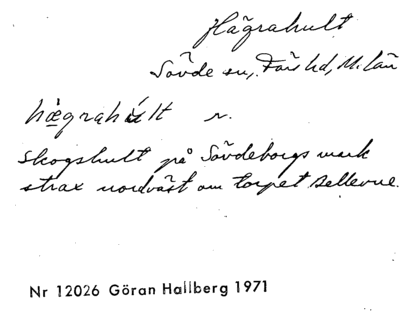 Hägrahult
Sövde sn, Färs hd, M. län
hægrahult n.
Skogshult på Sövdeborgs mark
strax nordväst om torpet Bellevue.
Nr 12026 Göran Hallberg 1971